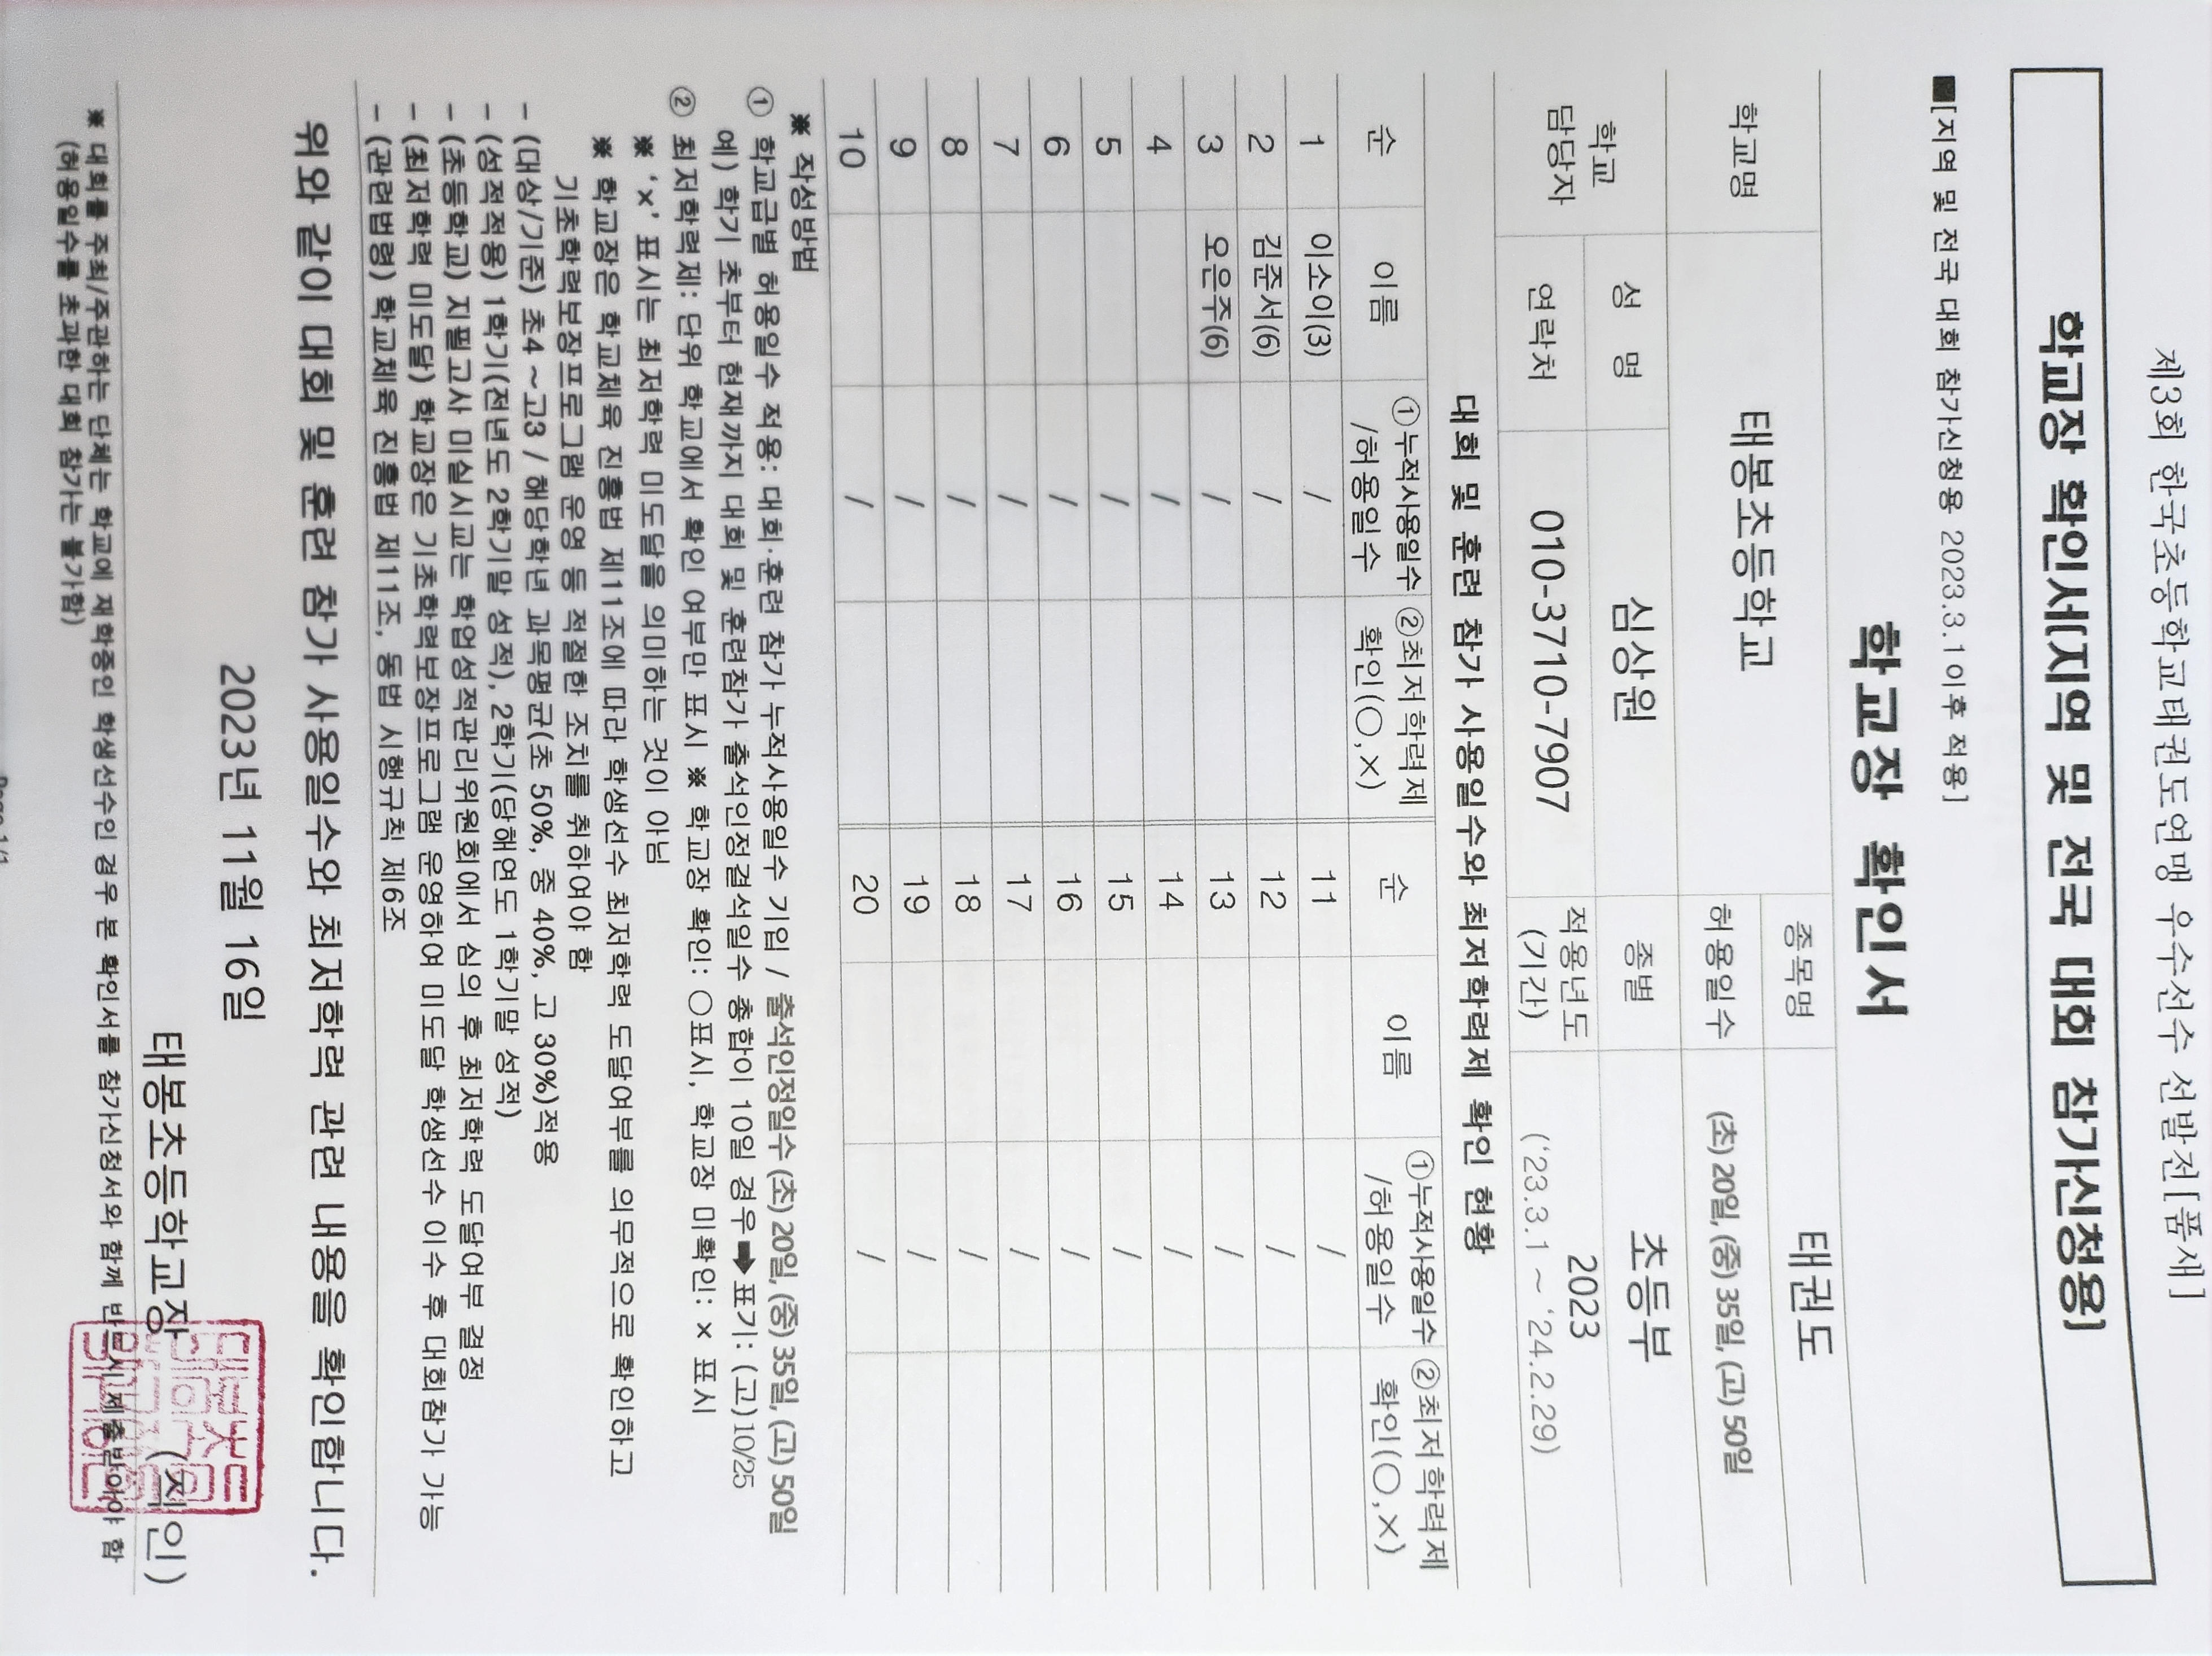 제3회 한국초등학교태권도연맹 우수선수 선발전[품새]
학교장 확인서[지역 및 전국 대회 참가신청용]
■[지역 및 전국 대회 참가신청용 2023.3.1이후 적용]
학교장 확인서
학교명 태봉초등학교 종목명 태권도
허용일수 (초) 20일, (중) 35일, (고) 50일
학교 담당자 성 명 심상원 종별 초등부
연락처 010-3710-7907 적용년도 (기간) 2023 ('23.3.1 ~ '24.2.29)
대회 및 훈련 참가 사용일수와 최저학력제 확인 현황
순 이름 ①누적사용일수 /허용일수 ②최저학력제 확인(○,×) 순 이름 ①누적사용일수 /허용일수 ②최저학력제 확인(○,×)
1 이소이(3) / 11 /
2 김준서(6) / 12 /
3 오은주(6) / 13 /
4 / 14 /
5 / 15 /
6 / 16 /
7 / 17 /
8 / 18 /
9 / 19 /
10 / 20 /
※ 작성방법
① 학교급별 허용일수 적용: 대회·훈련 참가 누적사용일수 기입 / 출석인정일수 (초) 20일, (중) 35일, (고) 50일
예) 학기 초부터 현재까지 대회 및 훈련참가 출석인정결석일수 총합이 10일 경우 ➡ 표기: (고)10/25
② 최저학력제: 단위 학교에서 확인 여부만 표시 ※ 학교장 확인: ○표시, 학교장 미확인: × 표시
※ '×' 표시는 최저학력 미도달을 의미하는 것이 아님
※ 학교장은 학교체육 진흥법 제11조에 따라 학생선수 최저학력 도달여부를 의무적으로 확인하고
기초학력보장프로그램 운영 등 적절한 조치를 취하여야 함
- (대상/기준) 초4 ~고3 / 해당학년 과목평균(초 50%, 중 40%, 고 30%)적용
- (성적적용) 1학기(전년도 2학기말 성적), 2학기(당해연도 1학기말 성적)
- (초등학교) 지필고사 미실시교는 학업성적관리위원회에서 심의 후 최저학력 도달여부 결정
- (최저학력 미도달) 학교장은 기초학력보장프로그램 운영하여 미도달 학생선수 이수 후 대회참가 가능
- (관련법령) 학교체육 진흥법 제11조, 동법 시행규칙 제6조
위와 같이 대회 및 훈련 참가 사용일수와 최저학력 관련 내용을 확인합니다.
2023년 11월 16일
태봉초등학교장 (직인)
※ 대회를 주최/주관하는 단체는 학교에 재학중인 학생선수인 경우 본 확인서를 참가신청서와 함께 반드시 제출받아야 함
(허용일수를 초과한 대회 참가는 불가함)